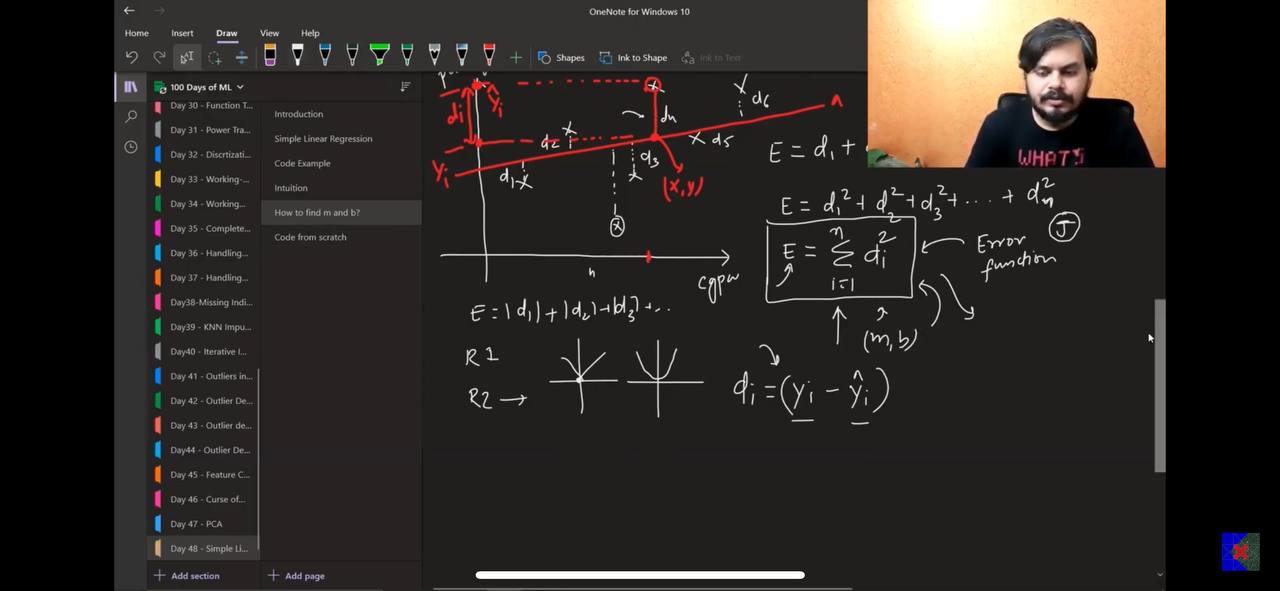 OneNote for Windows 10
Home Insert Draw View Help
Shapes Ink to Shape Ink to Text
100 Days of ML
Day 30 - Function T...
Day 31 - Power Tra...
Day 32 - Discrtizati...
Day 33 - Working-...
Day 34 - Working...
Day 35 - Complete...
Day 36 - Handling...
Day 37 - Handling...
Day38-Missing Indi...
Day39 - KNN Impu...
Day40 - Iterative I...
Day 41 - Outliers in...
Day 42 - Outlier De...
Day 43 - Outlier de...
Day44 - Outlier De...
Day 45 - Feature C...
Day 46 - Curse of...
Day 47 - PCA
Day 48 - Simple Li...
Add section
Introduction
Simple Linear Regression
Code Example
Intuition
How to find m and b?
Code from scratch
Add page
di
ŷi
yi
d1
d2
d3
dn
d5
d6
(x,y)
n
cgpa
E = d1 +
E = d1² + d2² + d3² + ... + dn²
E = Σ di²
n
i=1
Error
function
J
(m, b)
E = |d1| + |d2| + |d3| + ...
R1
R2 →
di = (yi - ŷi)
WHAT'S